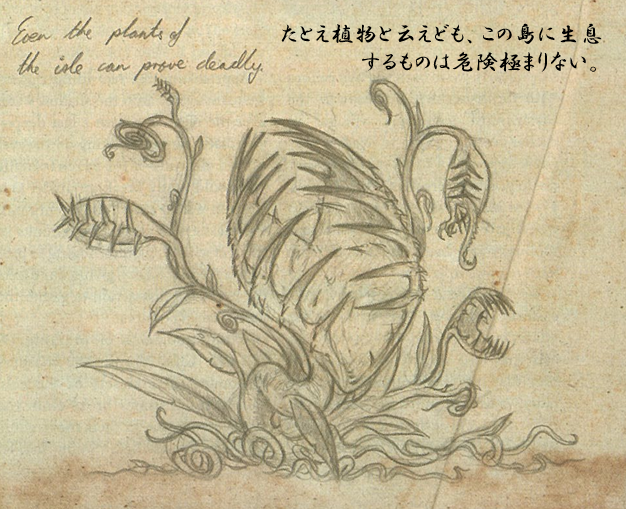 Even the plants of
the isle can prove deadly.
たとえ植物と云えども、この島に生息
するものは危険極まりない。